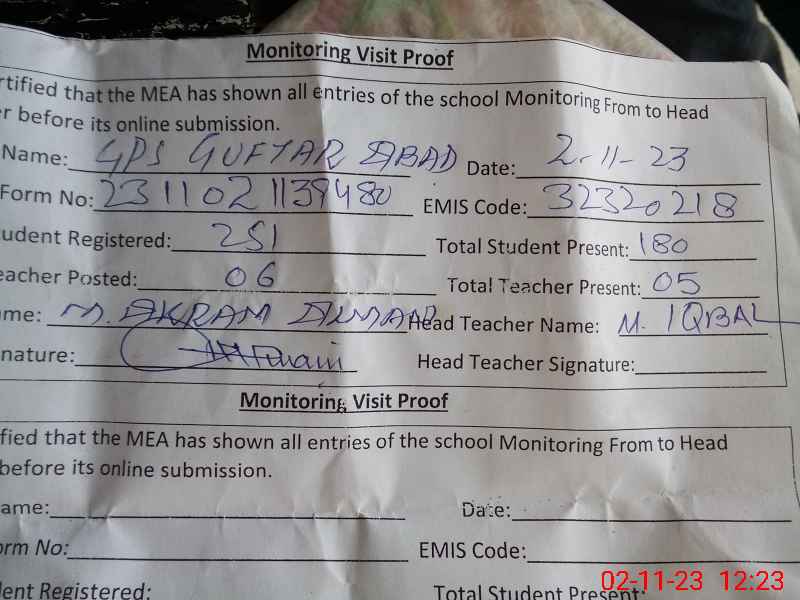 Monitoring Visit Proof
rtified that the MEA has shown all entries of the school Monitoring From to Head
er before its online submission.
Name: GPS GUFTAR ABAD Date: 2-11-23
Form No: 2311021139480 EMIS Code: 32320218
tudent Registered: 251 Total Student Present: 180
eacher Posted: 06 Total Teacher Present: 05
ame: M. AKRAM Head Teacher Name: M. IQBAL
nature: Head Teacher Signature:
Monitoring Visit Proof
fied that the MEA has shown all entries of the school Monitoring From to Head
before its online submission.
ame: Date:
orm No: EMIS Code:
dent Registered: Total Student Present:
02-11-23 12:23